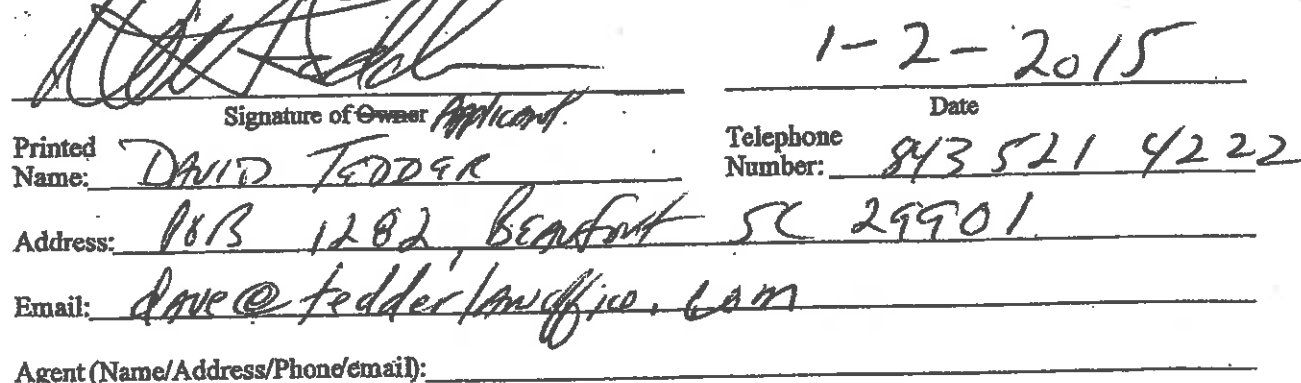 1-2-2015
Signature of Owner Applicant. Date
Printed Name: DAVID TEDDER Telephone Number: 843 521 4222
Address: POB 1282, Beaufort SC 29901
Email: dave@tedderlawoffice.com
Agent (Name/Address/Phone/email):